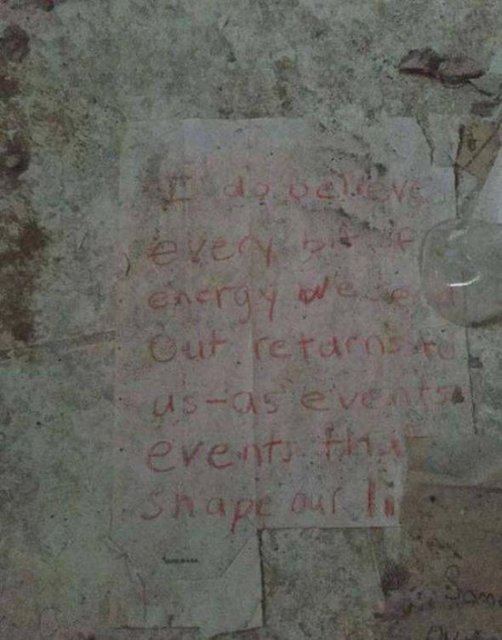 I do believe
every bit of
energy we send
out returns to
us-as events
events tha
shape our li
Som